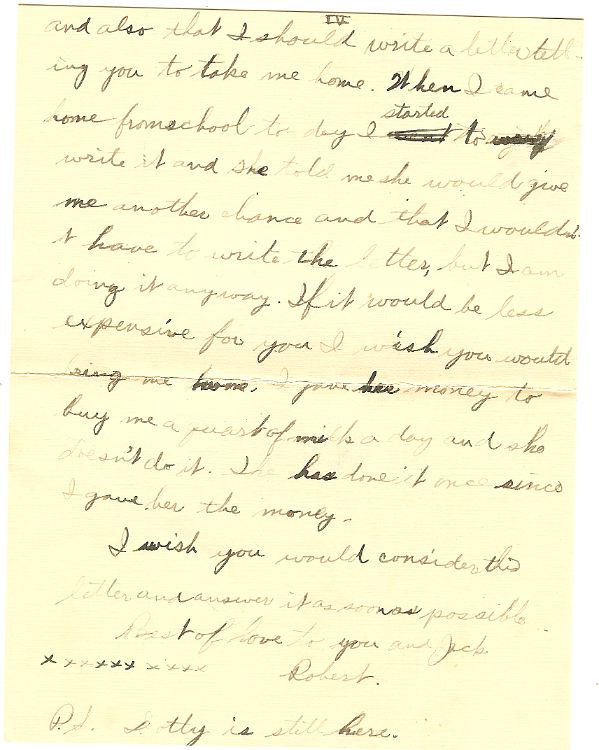 IV
and also that I should write a letter tell-
ing you to take me home. When I came
home from school to day I started to
write it and she told me she would give
me another chance and that I wouldn'
t have to write the letter, but I am
doing it anyway. If it would be less
expensive for you I wish you would
bring me home. I gave her money to
buy me a quart of milk a day and she
doesn't do it. She has done it once since
I gave her the money.
I wish you would consider this
letter and answer it as soon as possible.
Best of love to you and Jack
xxxxxx xxxx Robert.
P.S. Dotty is still here.